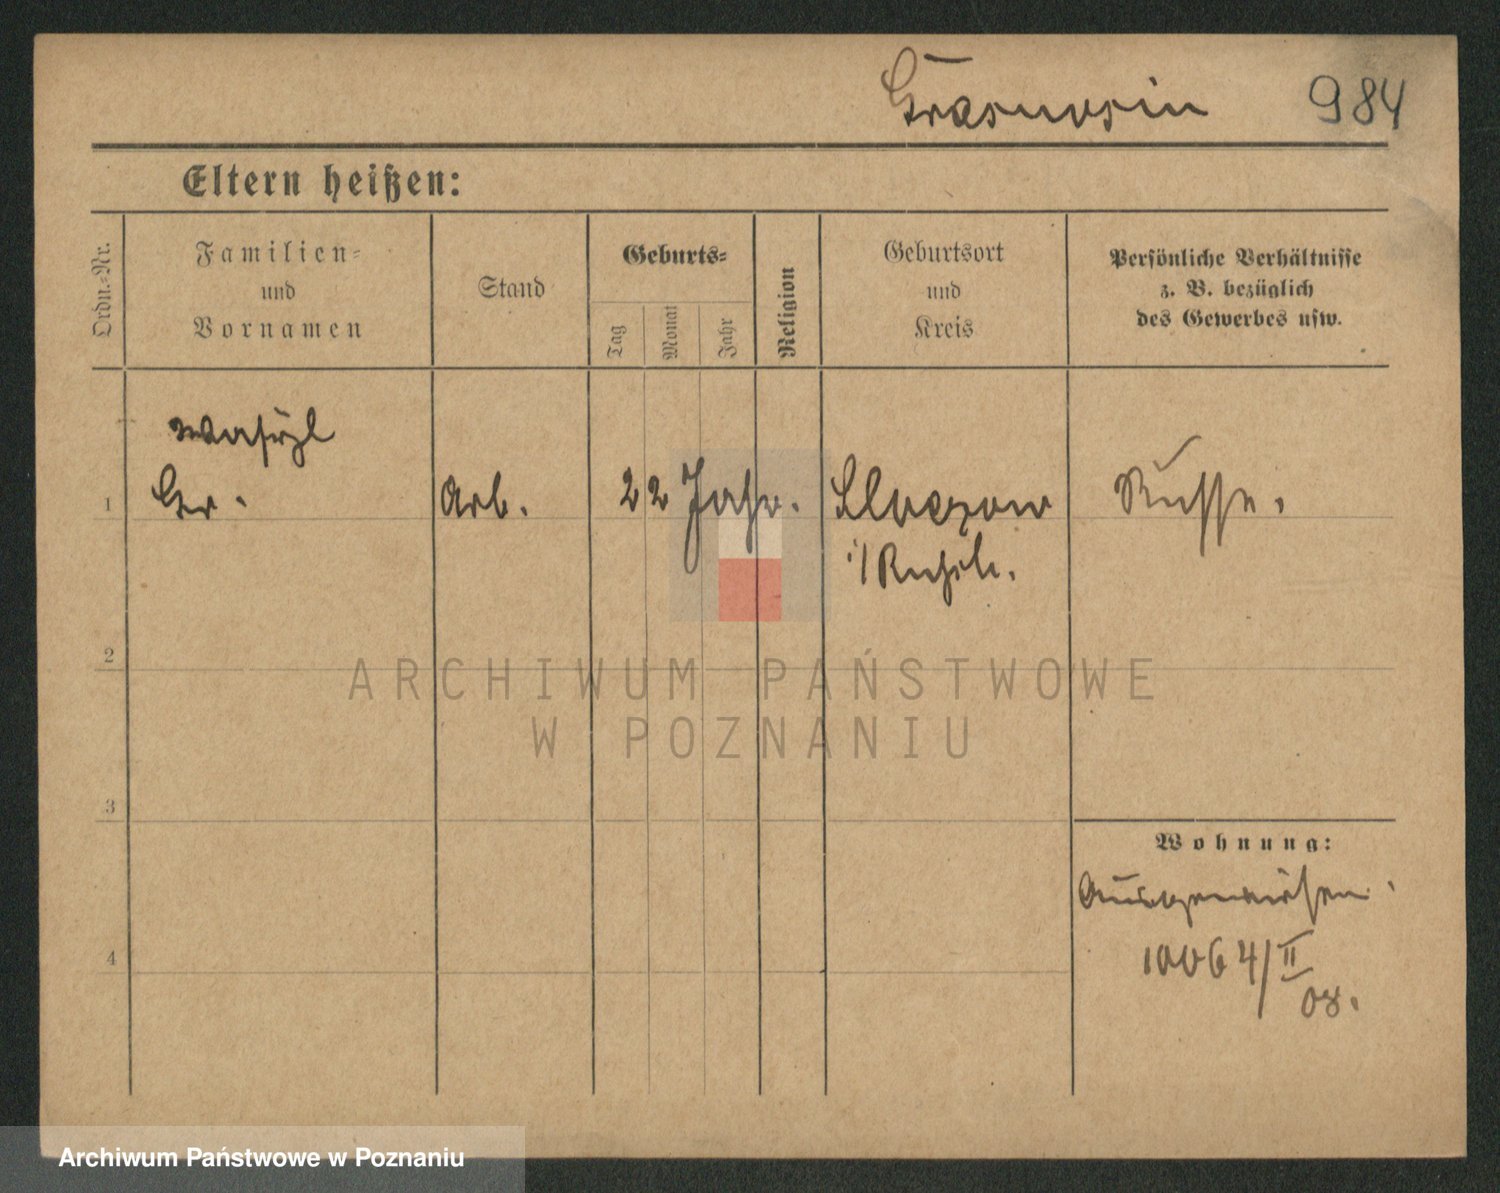 984
Eltern heißen:
Ordn.-Nr.
Familien-
und
Vornamen
Stand
Geburts-
Tag
Monat
Jahr
Religion
Geburtsort
und
Kreis
Persönliche Verhältnisse
z. B. bezüglich
des Gewerbes usw.
1
Gr.
Arb.
22 Jahr.
i/
Russe.
2
3
4
Wohnung:
Ausgewiesen.
10064/II
08.
ARCHIWUM PAŃSTWOWE
W POZNANIU
Archiwum Państwowe w Poznaniu